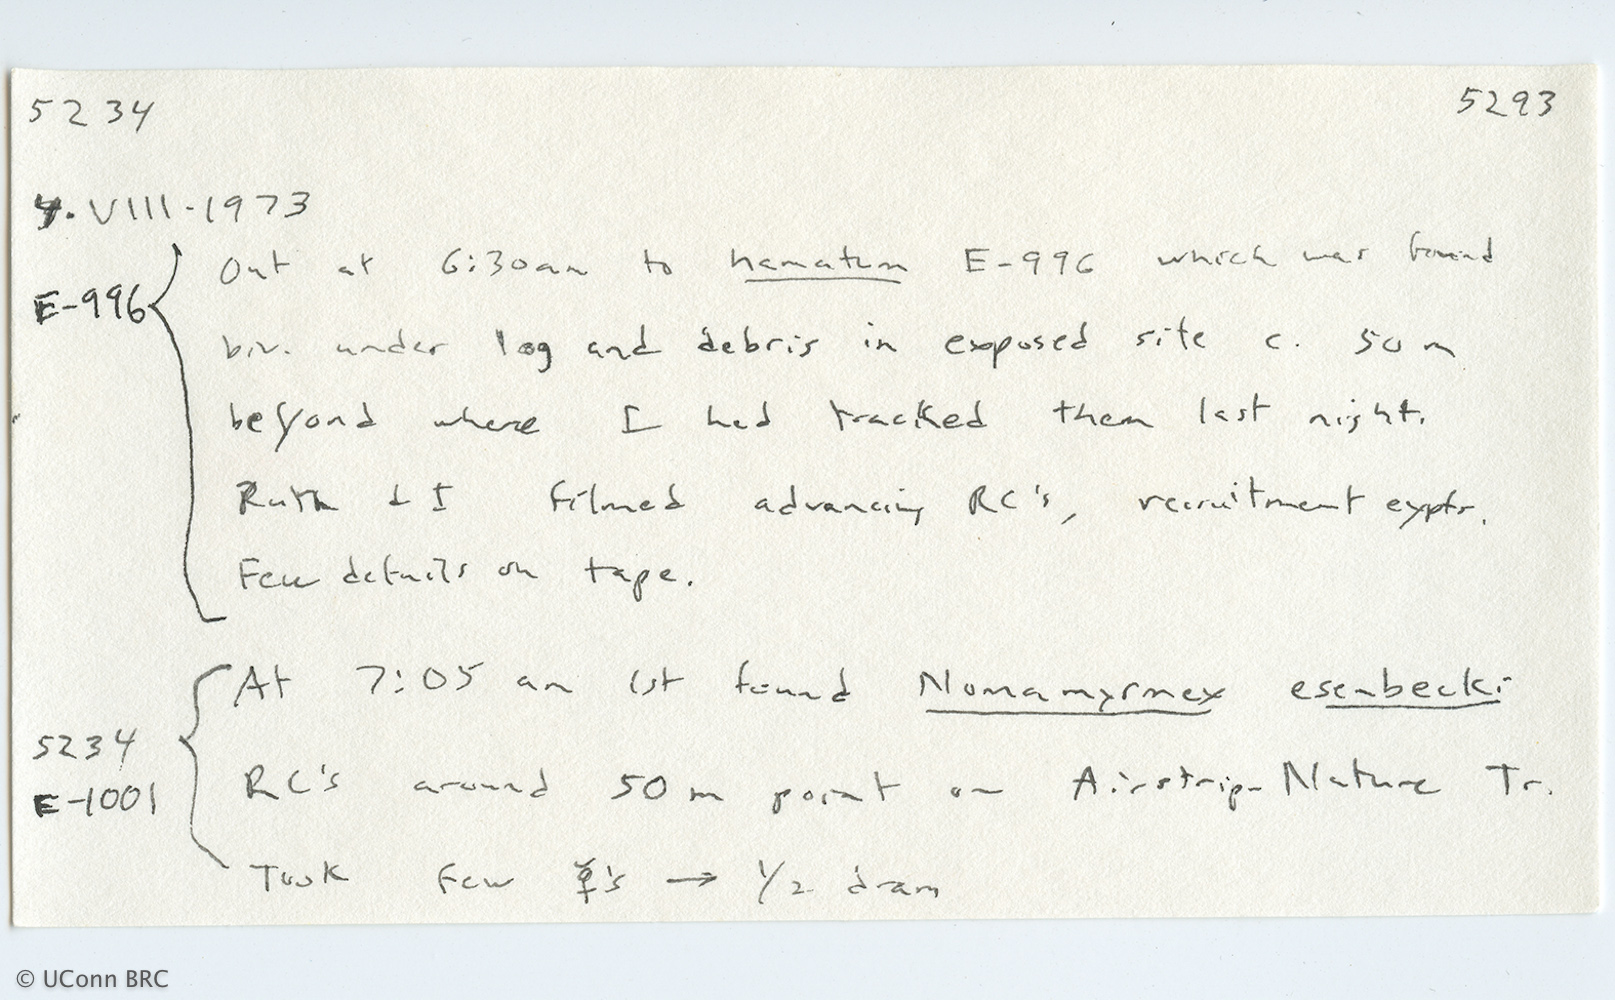 5234 5293
4.VIII.1973
Out at 6:30am to hamatum E-996 which was found
E-996
biv. under log and debris in exposed site c. 50 m
beyond where I had tracked them last night.
Ruth & I filmed advancing RC's, recruitment expts.
Few details on tape.
At 7:05 am 1st found Nomamyrmex esenbecki
5234
RC's around 50 m point on Airstrip-Nature Tr.
E-1001
Took few ☿'s → 1/2 dram
© UConn BRC